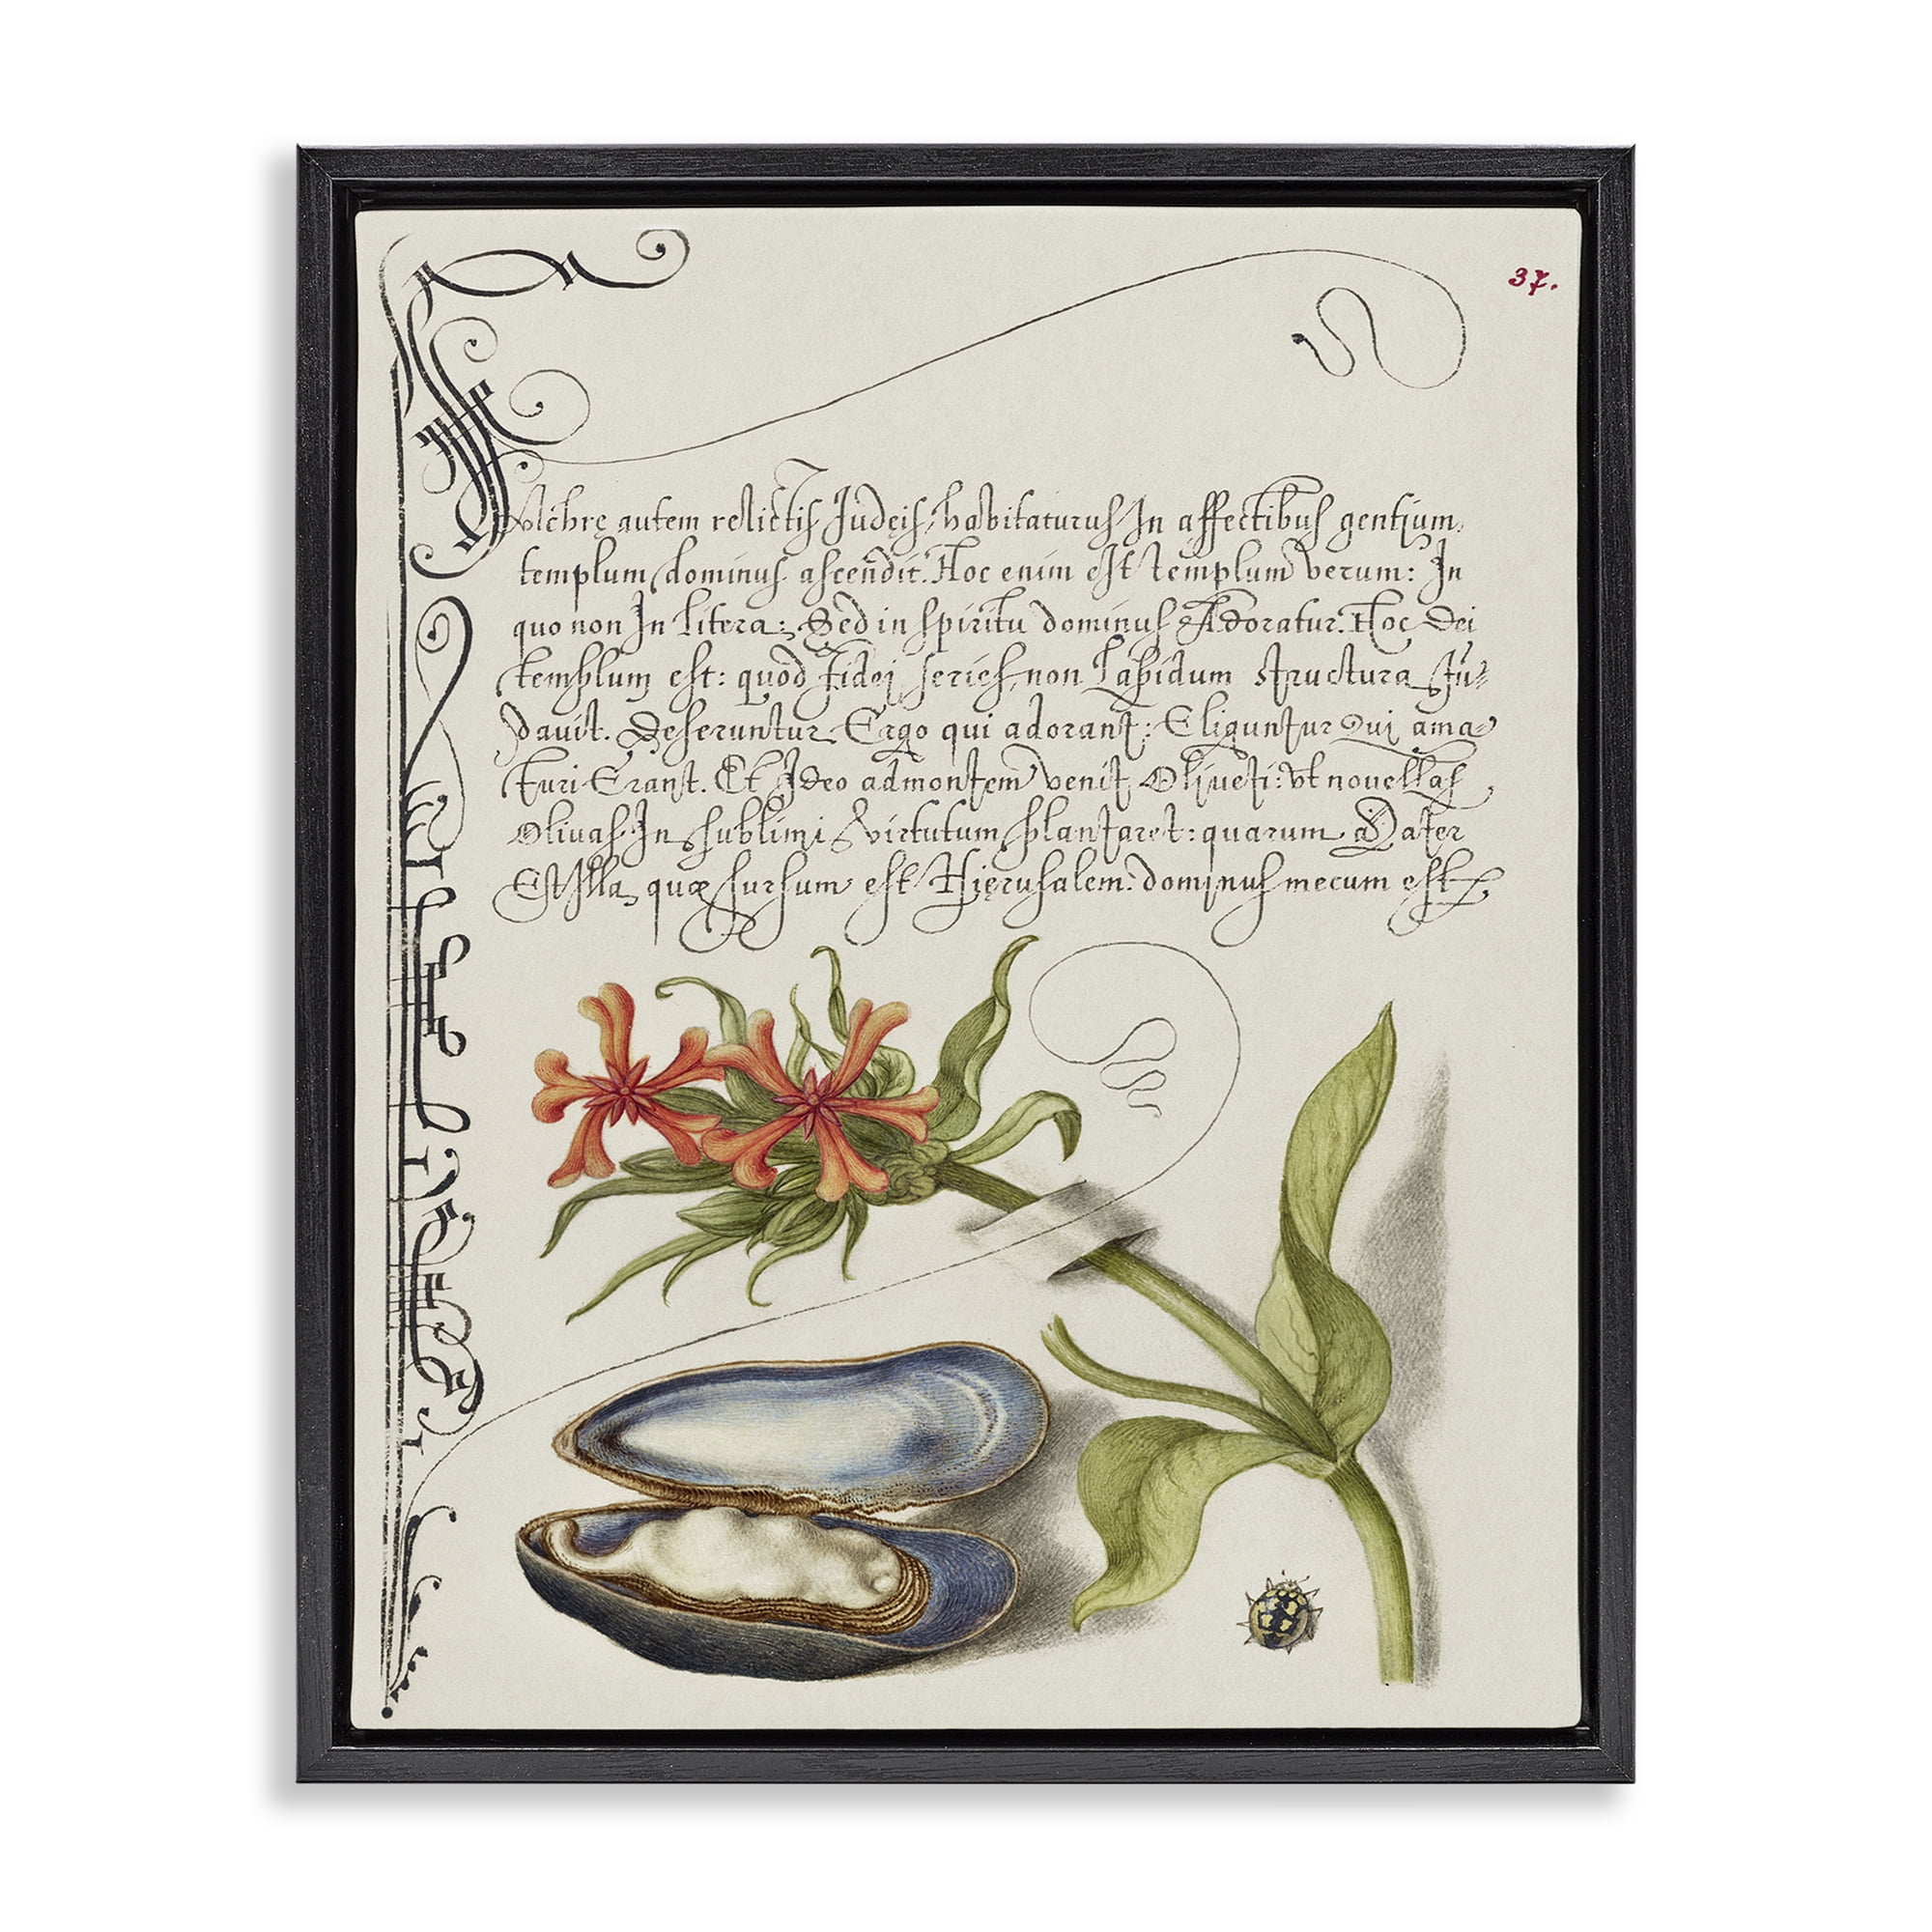 37.
Pulchrę autem relictis Judeis, habitaturus In affectibus gentium
templum, dominus ascendit. Hoc enim est templum verum: In
quo non In litera: Sed in spiritu dominus Adoratur. Hoc Dei
templum est: quod fidei series, non Lapidum structura fun=
dauit. Deseruntur Ergo qui adorant: Eliguntur Qui ama=
turi Erant. Et Ideo ad montem venit Oliueti: vt nouellas
Oliuas In sublimi virtutum plantaret: quarum Mater
Est Illa, quæ sursum est Hierusalem. dominus mecum est